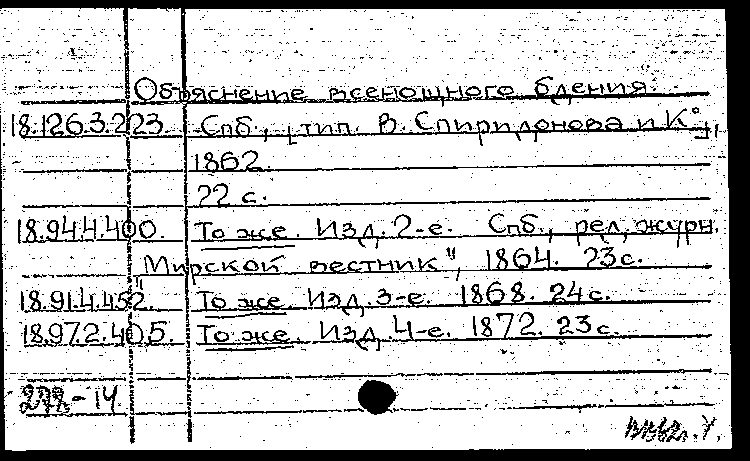 Объяснение всенощного бдения.
18.126.3.223. Спб., [тип. В. Спиридонова и К°],
1862.
22 с.
18.94.4.400. То же. Изд. 2-е. Спб., рел. журн.
"Мирской вестник", 1864. 23 с.
18.91.4.452. То же. Изд. 3-е. 1868. 24 с.
18.97.2.405. То же. Изд. 4-е. 1872. 23 с.
272-14